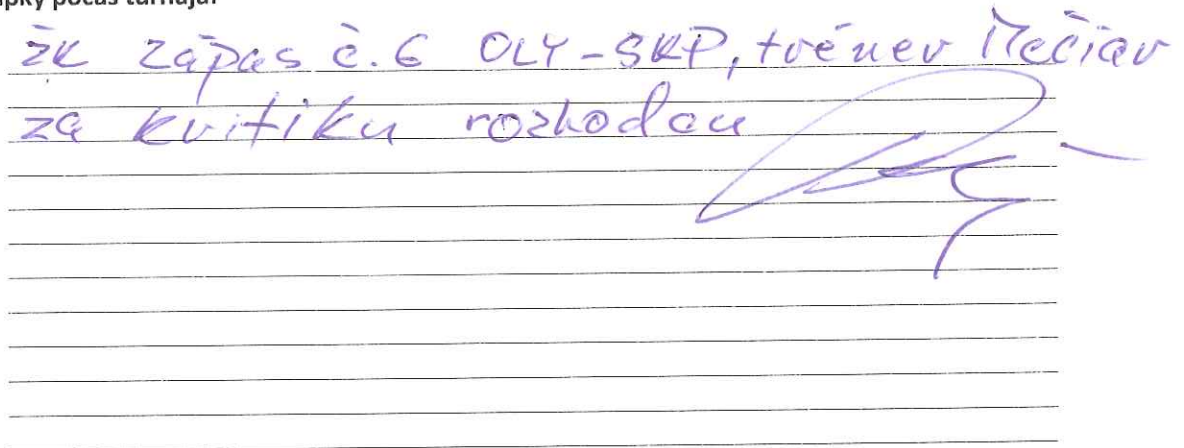 počas turnaja:
žk zápas č. 6 OLY-SKP, tréner Mečiar
za kritiku rozhodcu